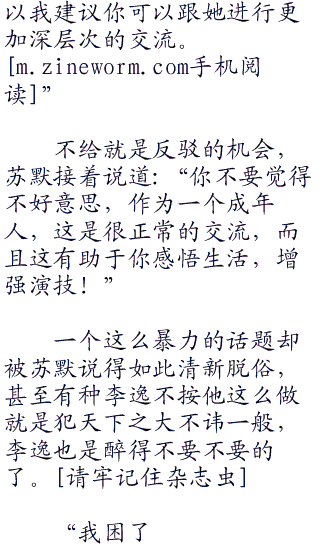 以我建议你可以跟她进行更
加深层次的交流。
[m.zineworm.com手机阅
读]”
不给就是反驳的机会，
苏默接着说道：“你不要觉得
不好意思，作为一个成年
人，这是很正常的交流，而
且这有助于你感悟生活，增
强演技！”
一个这么暴力的话题却
被苏默说得如此清新脱俗，
甚至有种李逸不按他这么做
就是犯天下之大不讳一般，
李逸也是醉得不要不要的
了。[请牢记住杂志虫]
“我困了